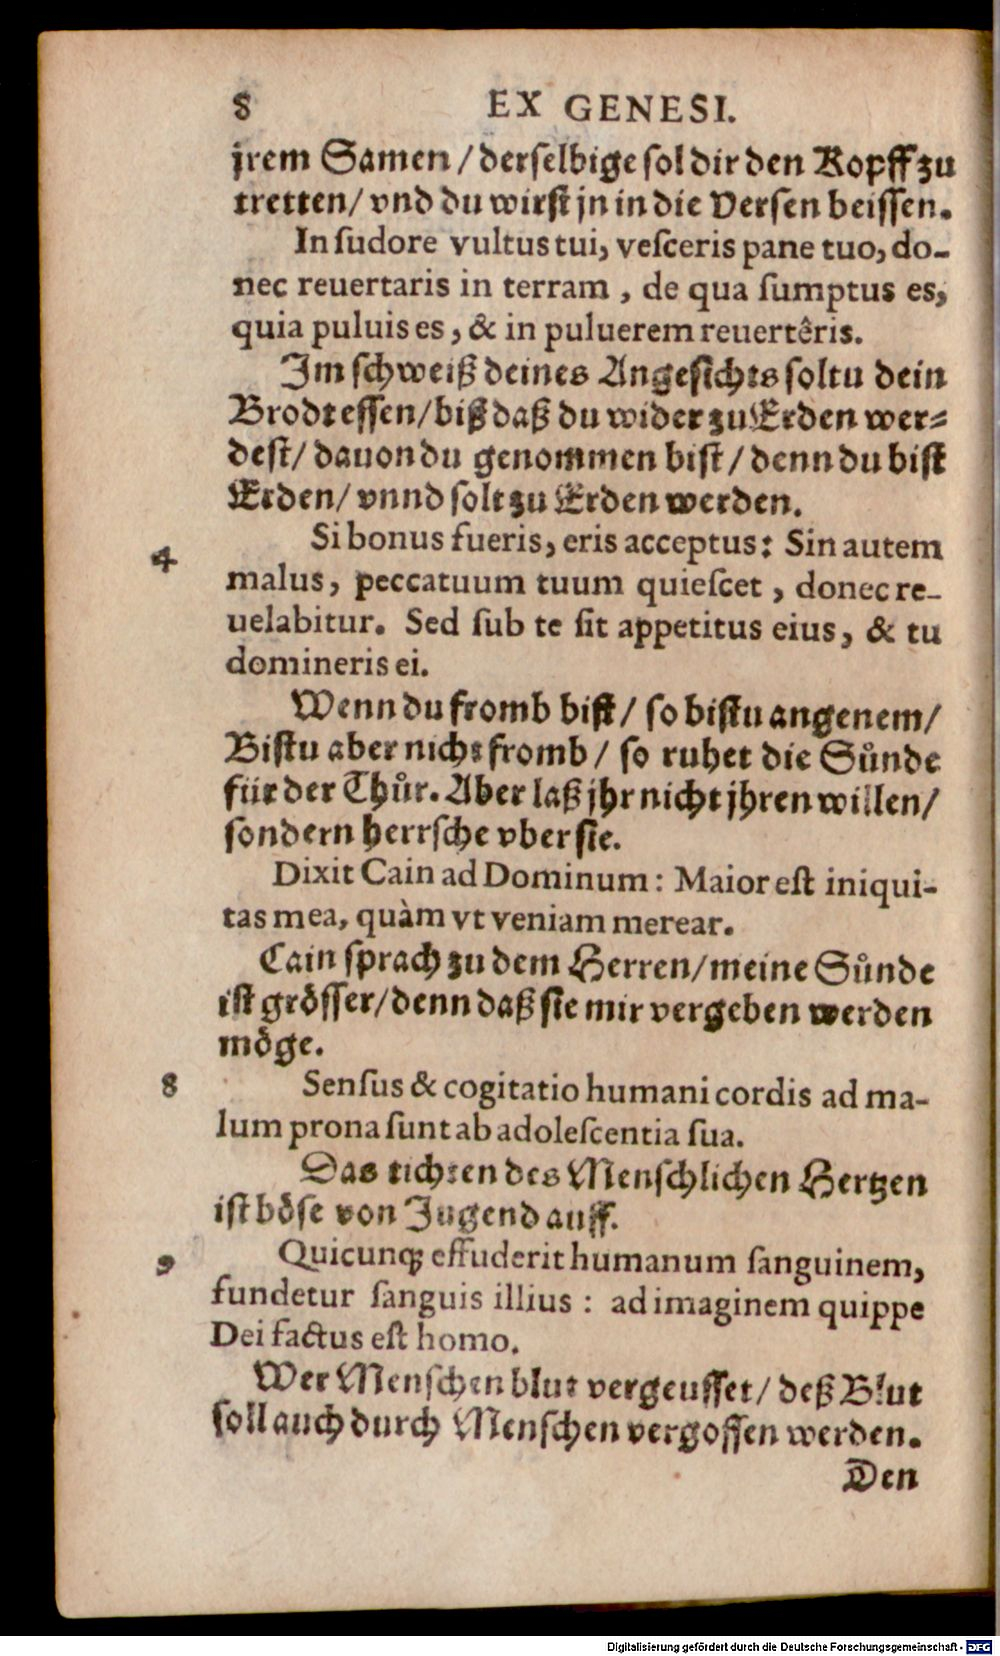 8 EX GENESI.
jrem Samen / derselbige sol dir den Kopff zu
tretten / vnd du wirst jn in die Versen beissen.
In ſudore vultus tui, veſceris pane tuo, do-
nec reuertaris in terram, de qua ſumptus es,
quia puluis es, & in puluerem reuertêris.
Im schweiß deines Angesichts soltu dein
Brodt essen / biß daß du wider zu Erden wer=
dest / dauon du genommen bist / denn du bist
Erden / vnnd solt zu Erden werden.
4 Si bonus fueris, eris acceptus: Sin autem
malus, peccatuum tuum quieſcet, donec re-
uelabitur. Sed ſub te ſit appetitus eius, & tu
domineris ei.
Wenn du fromb bist / so bistu angenem /
Bistu aber nicht fromb / so ruhet die Sůnde
für der Thůr. Aber laß jhr nicht jhren willen /
sondern herrsche vber sie.
Dixit Cain ad Dominum: Maior eſt iniqui-
tas mea, quàm vt veniam merear.
Cain sprach zu dem Herren / meine Sůnde
ist grösser / denn daß sie mir vergeben werden
möge.
8 Senſus & cogitatio humani cordis ad ma-
lum prona ſunt ab adoleſcentia ſua.
Das tichten des Menschlichen Hertzen
ist böse von Jugend auff.
9 Quicunq; effuderit humanum ſanguinem,
fundetur ſanguis illius: ad imaginem quippe
Dei factus eſt homo.
Wer Menschen blut vergeusset / deß Blut
soll auch durch Menschen vergossen werden.
Den
Digitalisierung gefördert durch die Deutsche Forschungsgemeinschaft - DFG